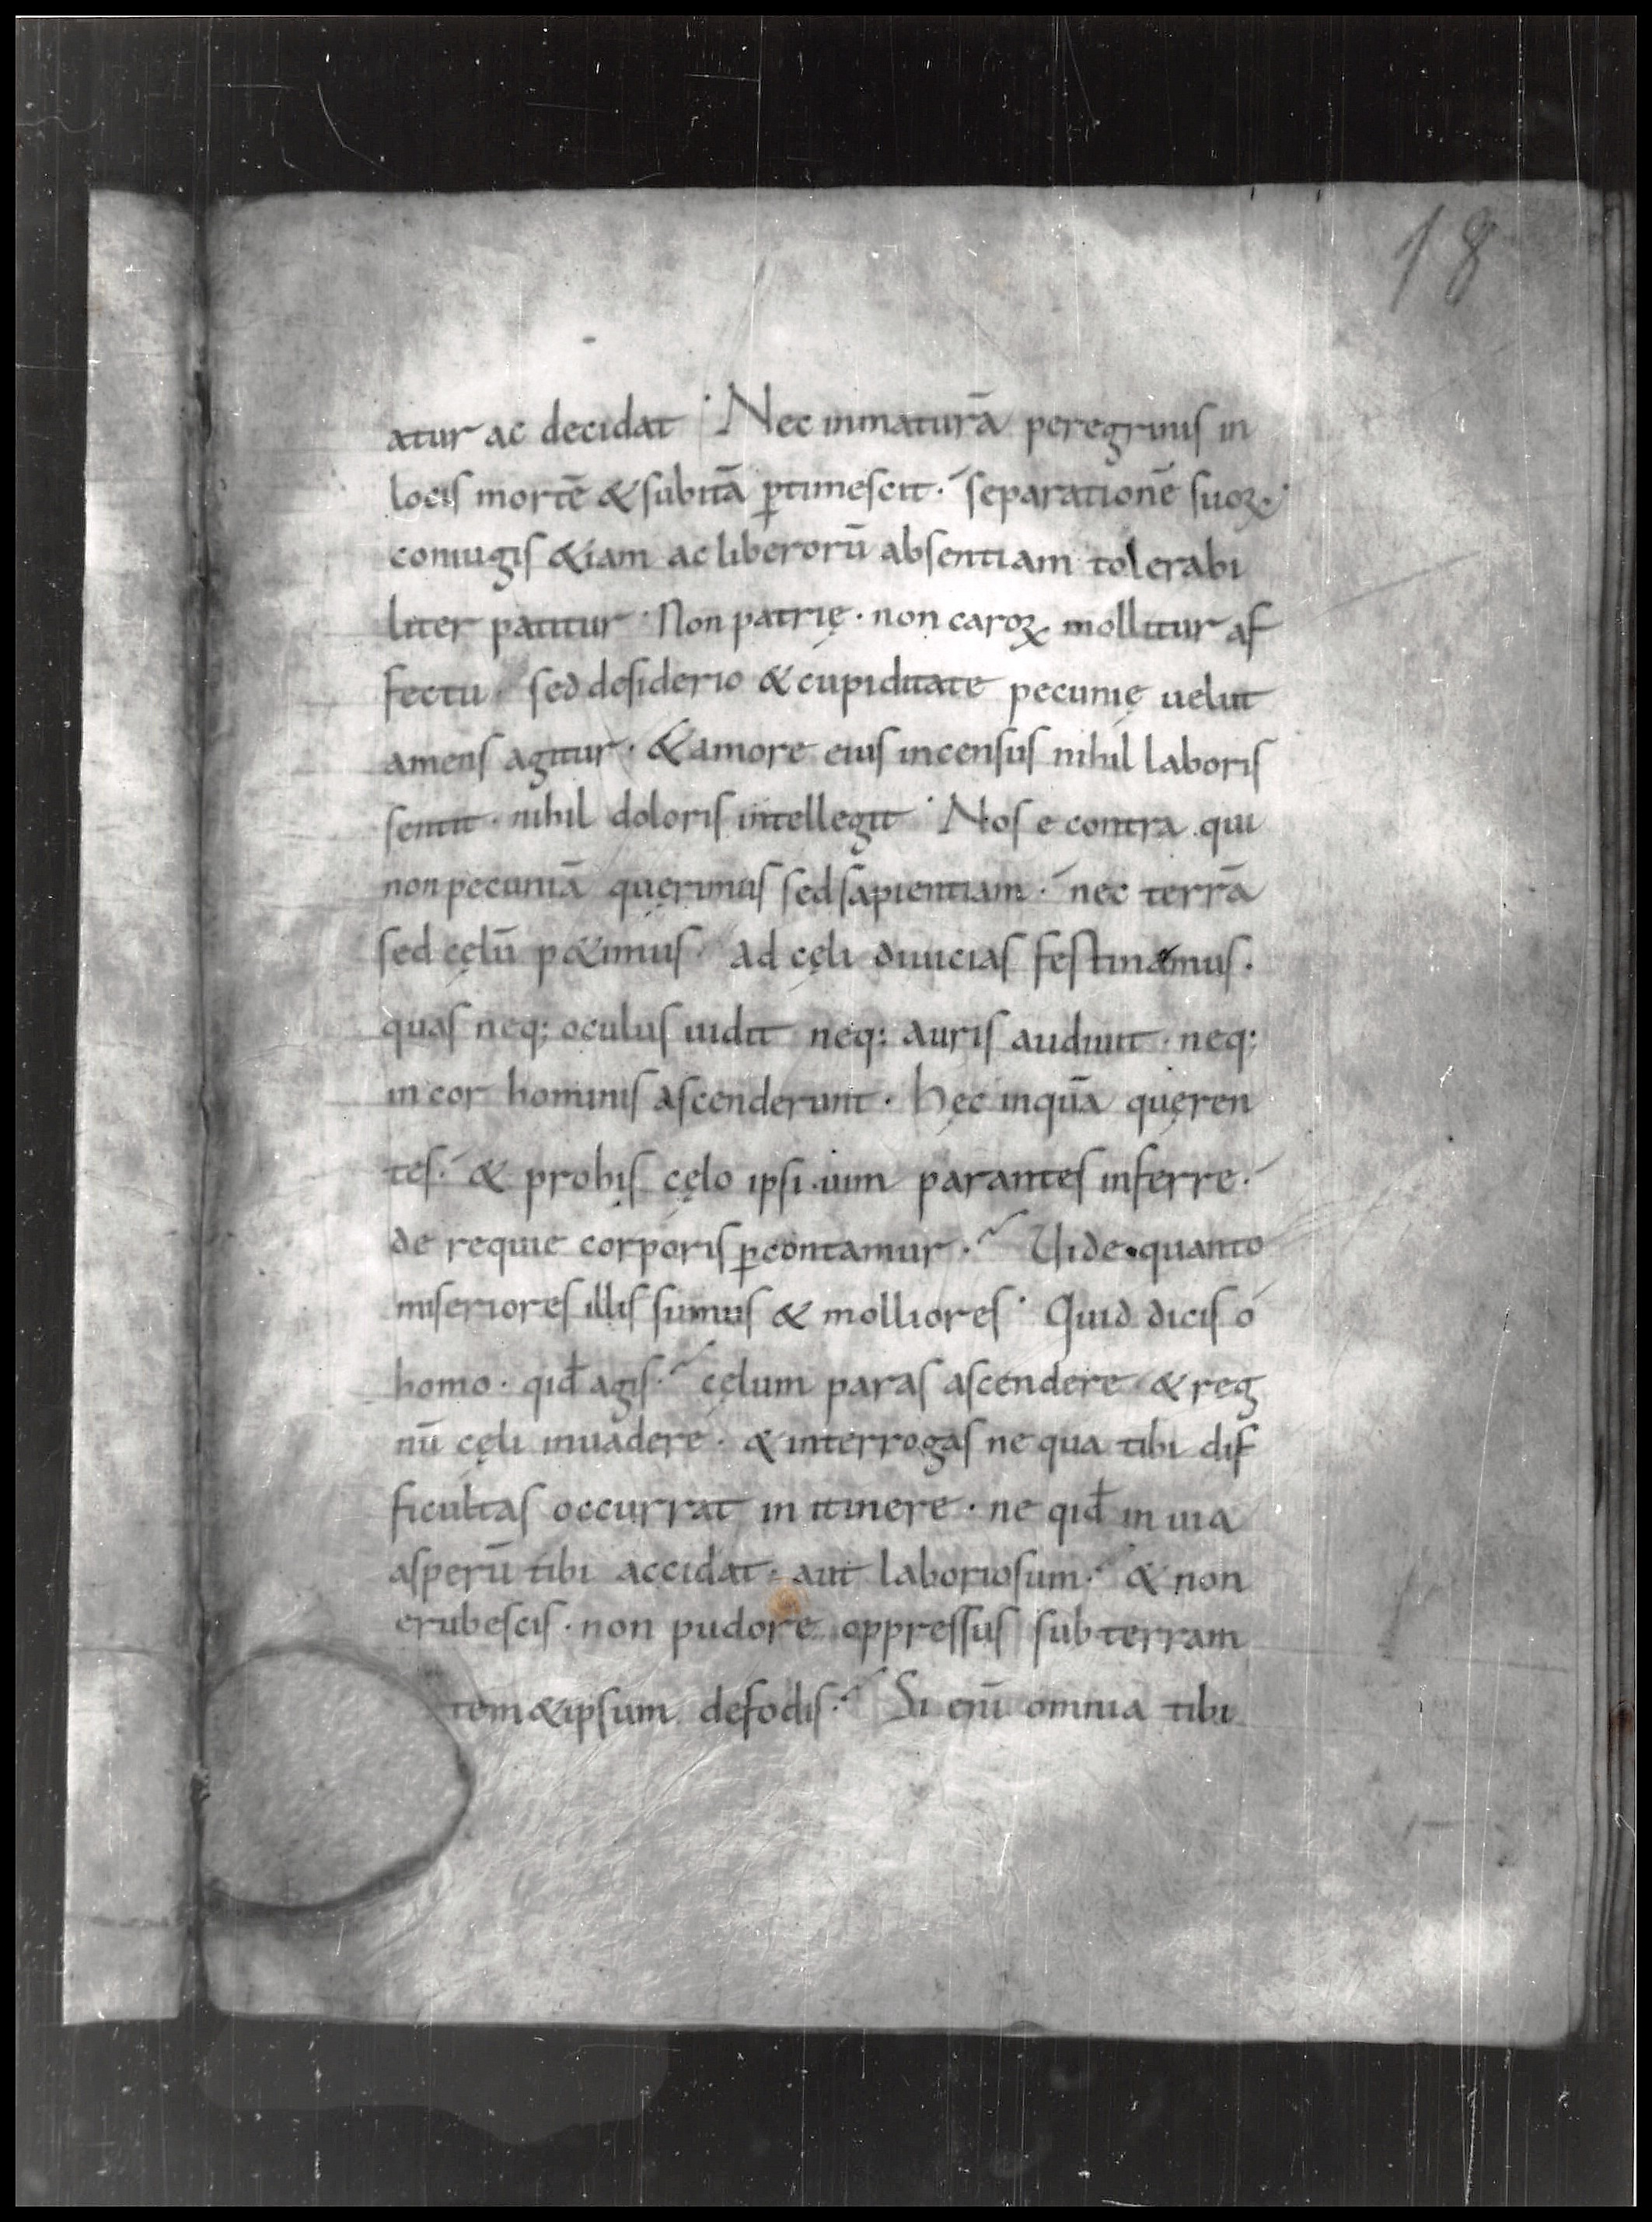 18
atur ac decidat · Nec inmaturā peregrinis in
locis mortē & subitā ꝑtimescit · separationē suoꝝ ·
coniugis &iam ac liberorū absentiam tolerabi
liter patitur · Non patrię · non caroꝝ mollitur af
fectu · sed desiderio & cupiditate pecunię uelut
amens agitur · & amore eius incensus nihil laboris
sentit · nihil doloris intellegit · Nos e contra qui
non pecuniā querimus sed sapientiam · nec terrā
sed cęlū p&imus · ad cęli diuicias festinamus ·
quas neq; oculus uidit neq; auris audiuit · neq;
in cor hominis ascenderunt · hęc inquā quęren
tes · & probis cęlo ipsi · uim parantes inferre ·
de requie corporis ꝑcontamur · Uide quanto
miseriores illis sumus & molliores · Quid dicis o
homo · qid̄ agis · cęlum paras ascendere · & reg
nū cęli inuadere · & interrogas ne qua tibi dif
ficultas occurrat in itinere · ne qid̄ in uia
asperū tibi accidat · aut laboriosum · & non
erubescis · non pudore oppressus sub terram
tem&ipsum defodis · Si enī omnia tibi